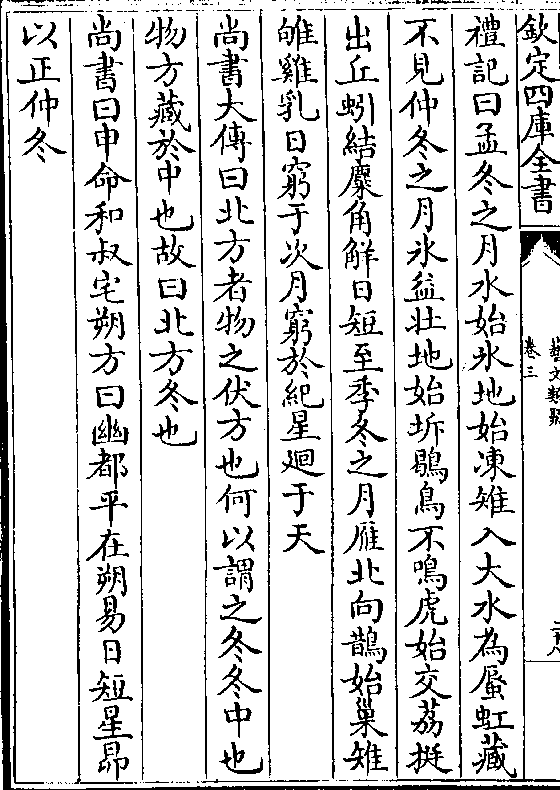 欽定四庫全書
藝文類聚
卷三
禮記曰孟冬之月水始氷地始凍雉入大水為蜃虹藏
不見仲冬之月氷益壯地始坼鶡鳥不鳴虎始交荔挺
出丘蚓結麋角解日短至季冬之月雁北向鵲始巢雉
雊雞乳日窮于次月窮於紀星廻于天
尚書大傳曰北方者物之伏方也何以謂之冬冬中也
物方藏於中也故曰北方冬也
尚書曰申命和叔宅朔方曰幽都平在朔易日短星昴
以正仲冬